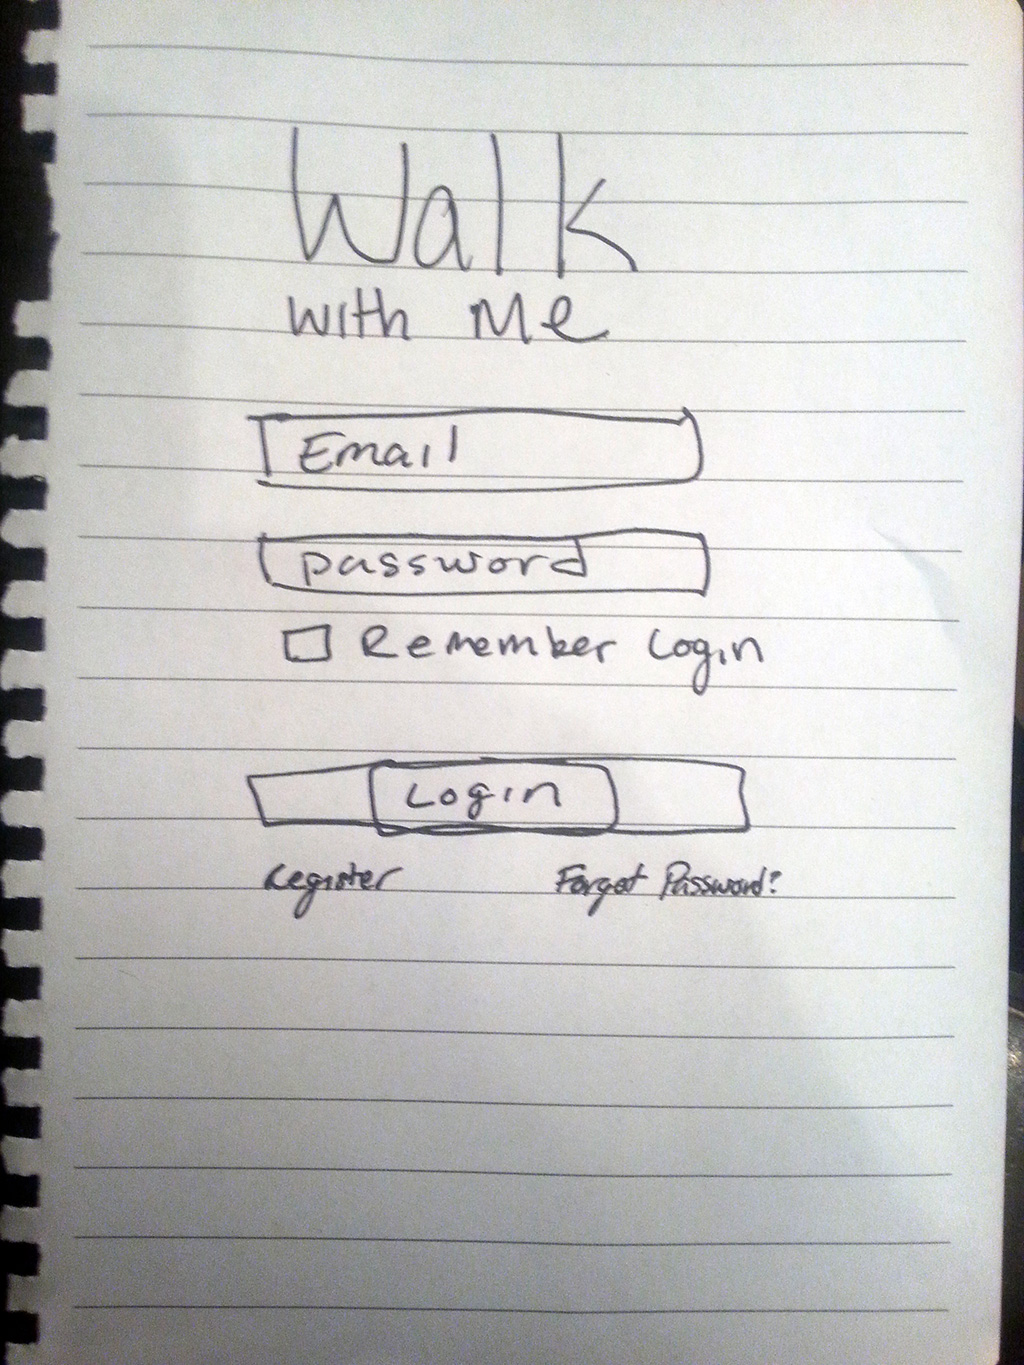 Walk
with Me
Email
password
Remember Login
Login
Register
Forgot Password?